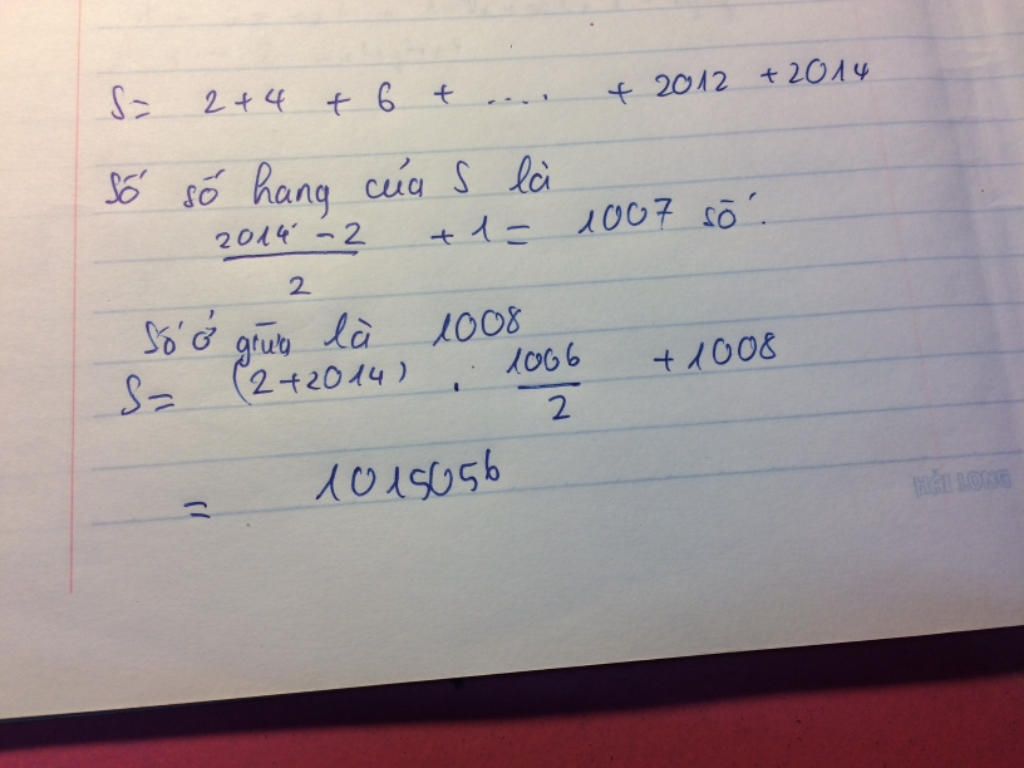 S= 2+4 + 6 + .... + 2012 +2014
Số số hang của S là
2014 - 2 + 1 = 1007 số.
2
Số ở giữa là 1008
S= (2+2014) . 1006 + 1008
2
= 1015056
HẢI LONG